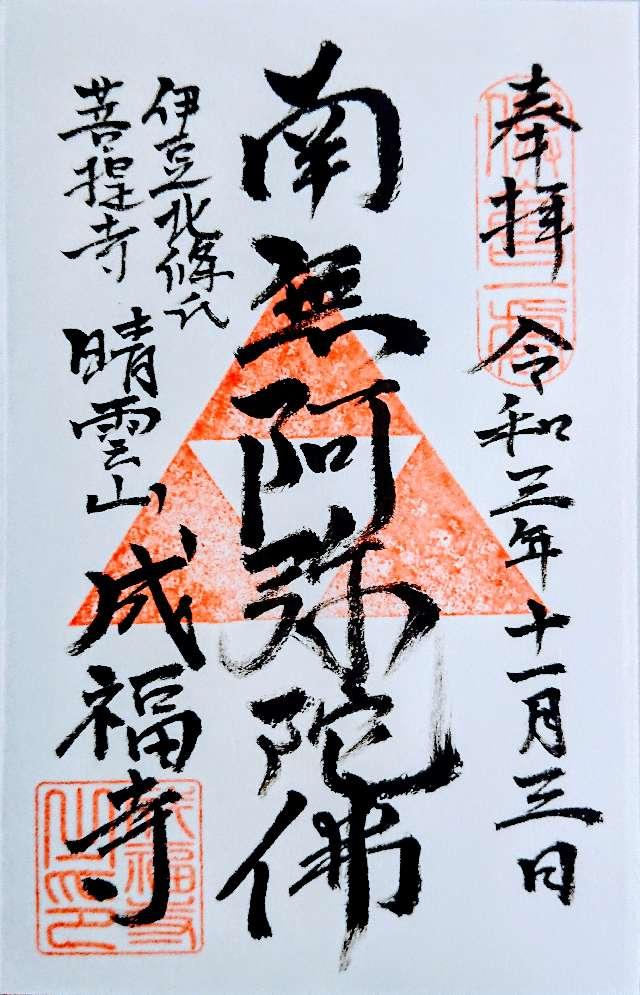 奉拝 令和三年十一月三日
南無阿弥陀佛
伊豆北條氏
菩提寺 晴雲山 成福寺